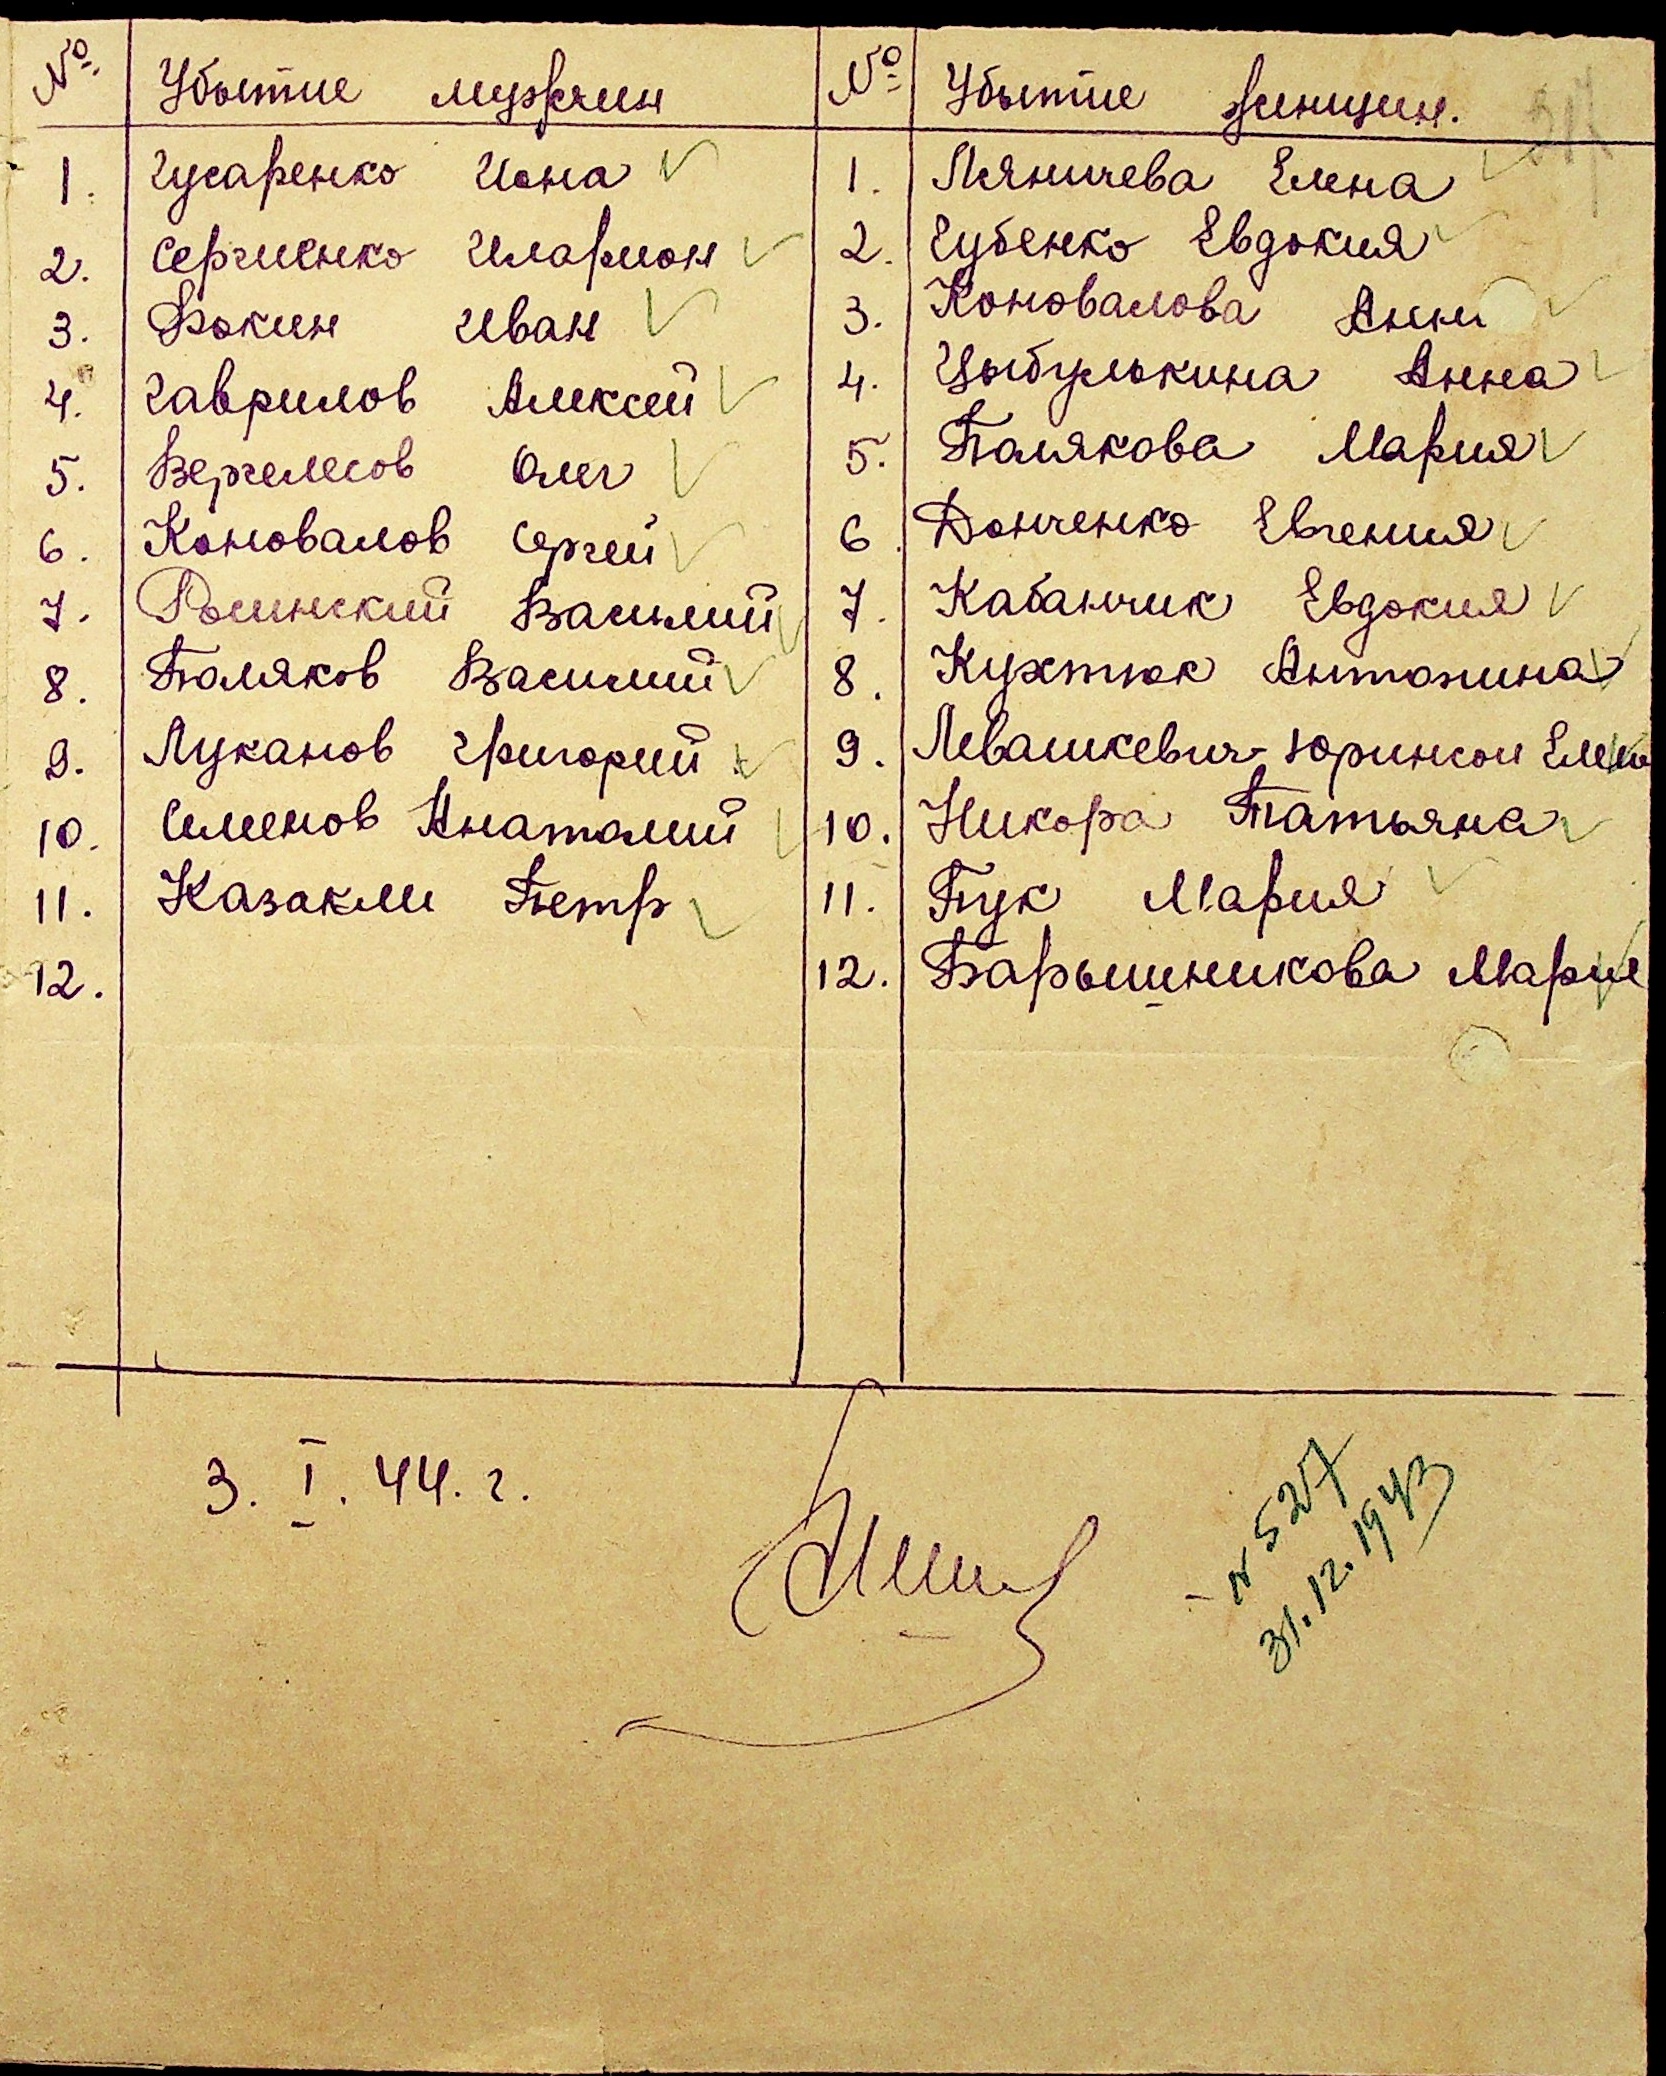 № Убытие мужчин № Убытие женщин.
1. Гусаренко Иона 1. Ляничева Елена
2. Сергиенко Иларион 2. Губенко Евдокия
3. Фокин Иван 3. Коновалова Анн
4. Гаврилов Алексей 4. Цыбулькина Анна
5. Вергелесов Олег 5. Полякова Мария
6. Коновалов Сергей 6. Донченко Евгения
7. Росинский Василий 7. Кабанчик Евдокия
8. Поляков Василий 8. Кухтюк Антонина
9. Луканов Григорий 9. Левашкевич-Юринсон Елена
10. Семенов Анатолий 10. Никора Татьяна
11. Казакли Петр 11. Пук Мария
12. 12. Барышникова Мария
3. I. 44. г.
№ 527
31.12.1943